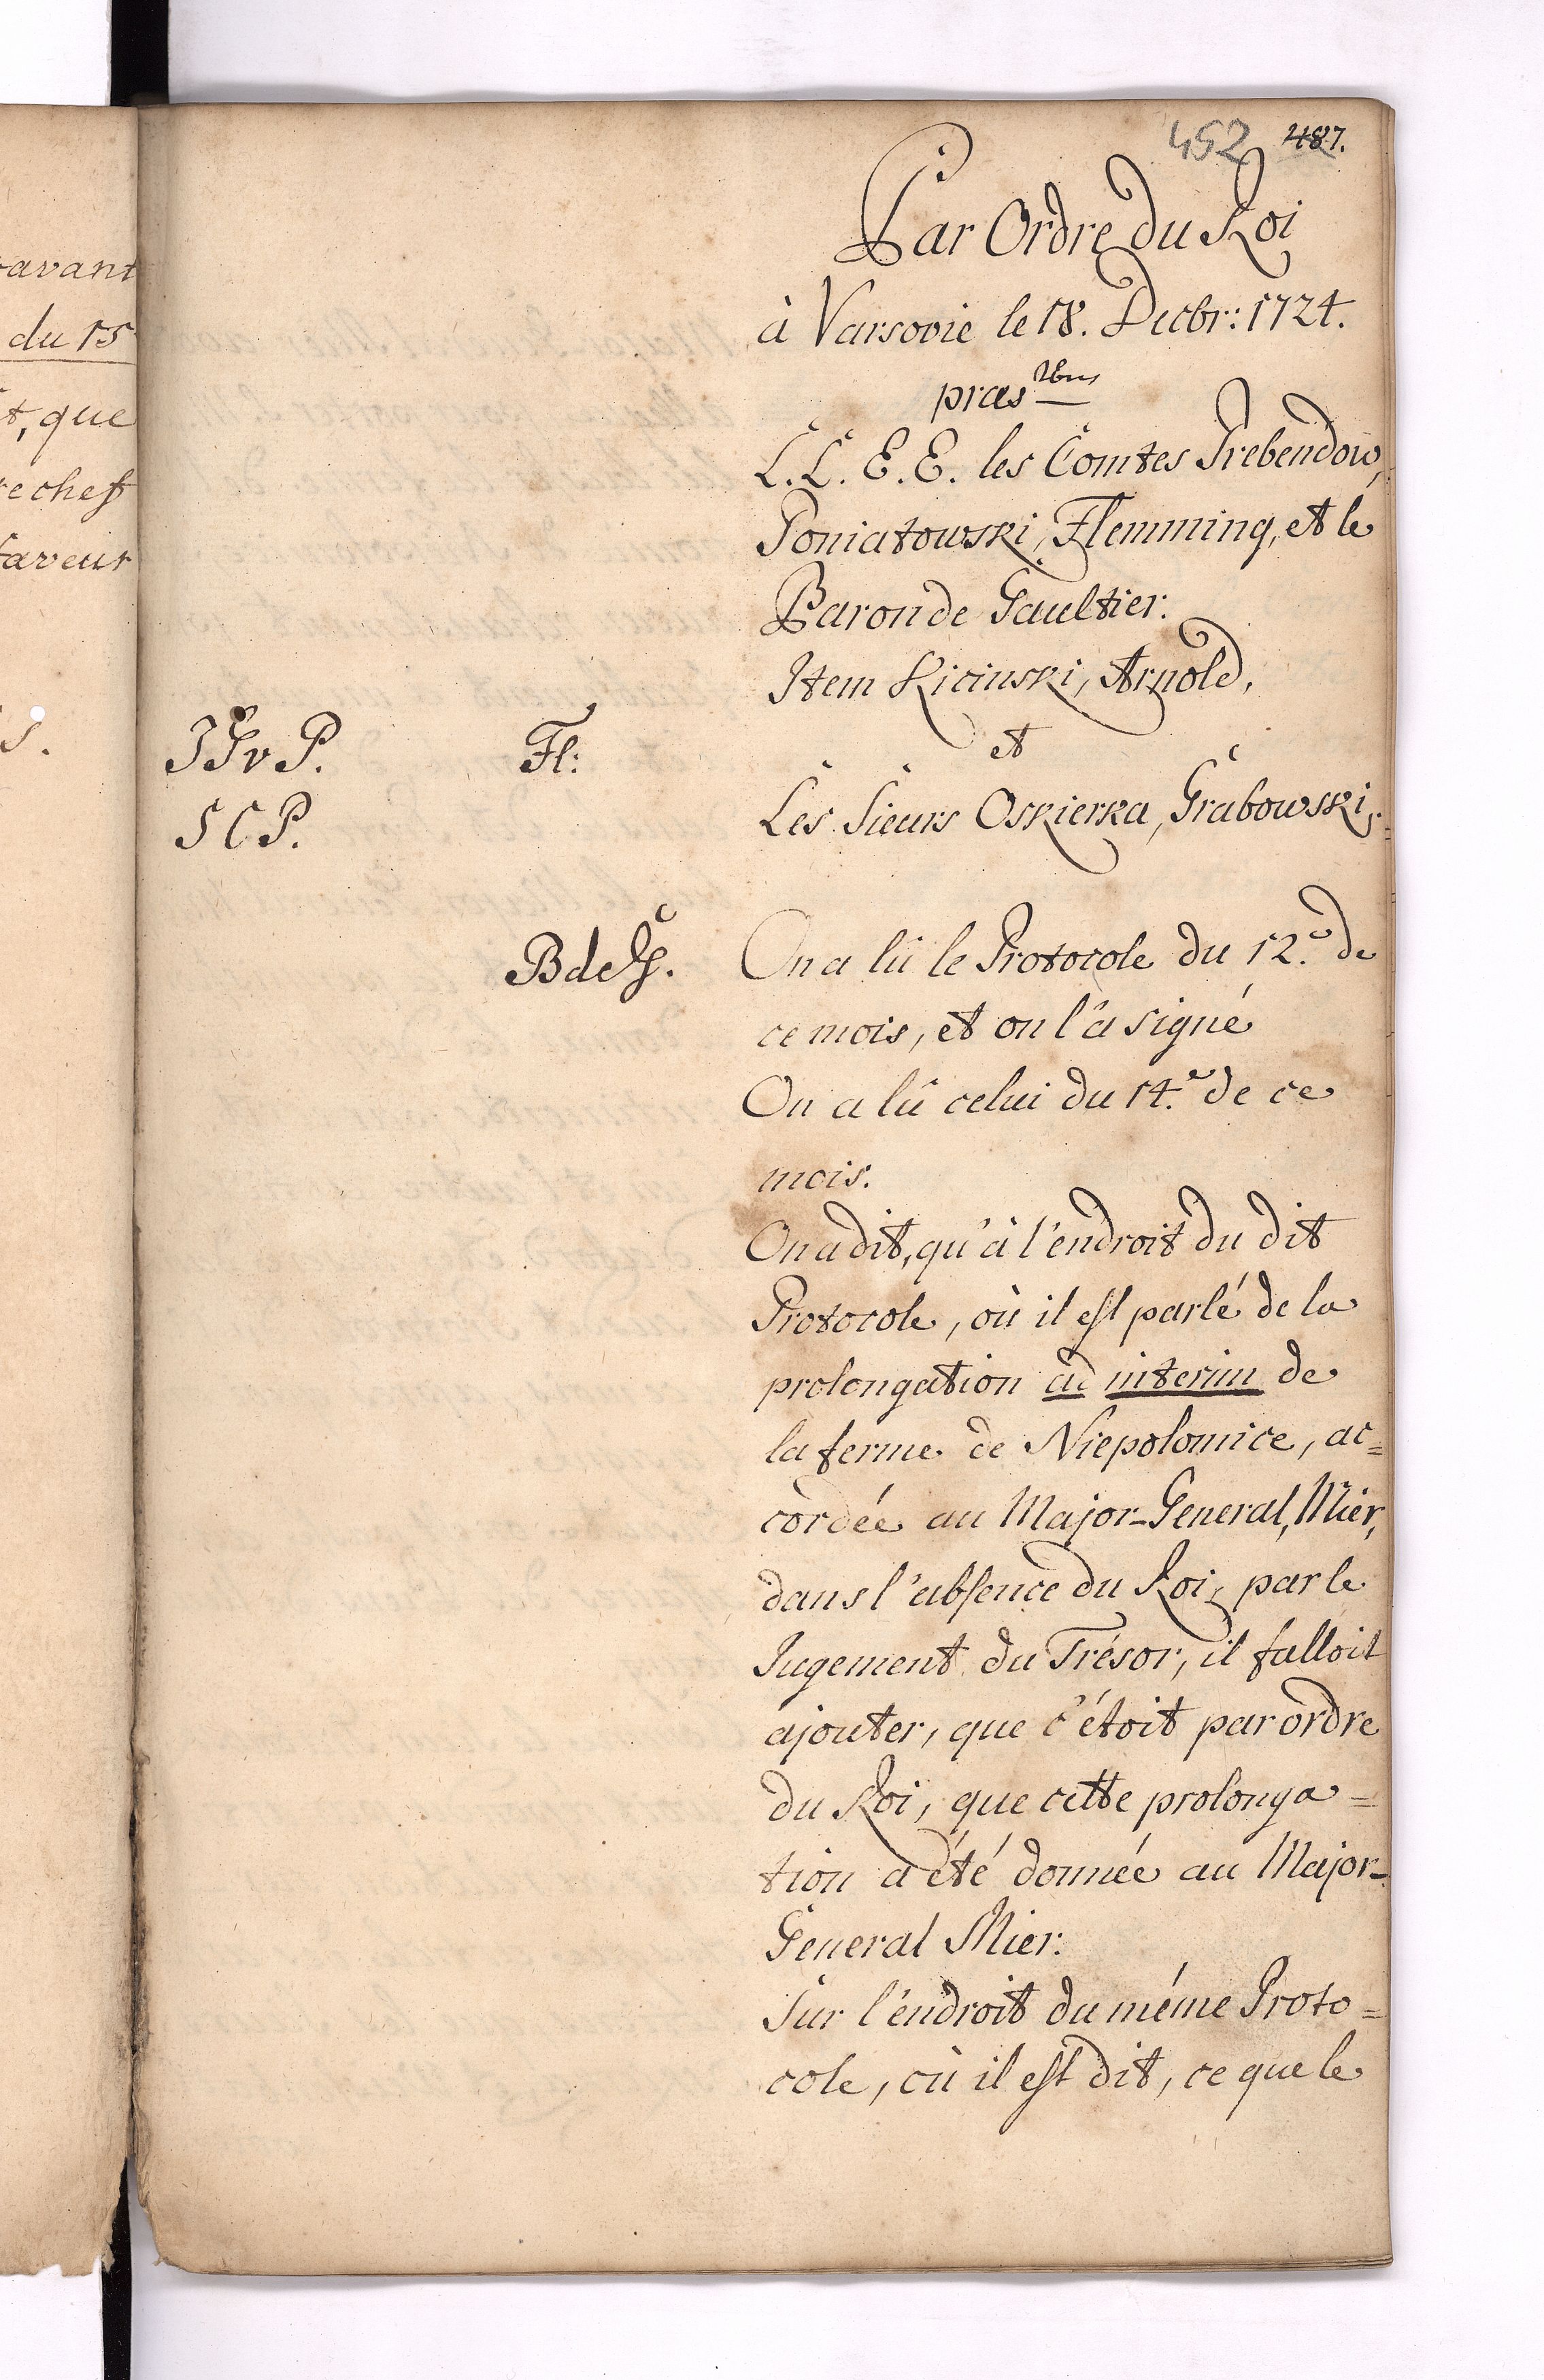 avant
du 15
t, que
rechef
faveur
s.
452 487.
Par Ordre du Roi
à Varsovie le 18. Decbr: 1724.
præs tbus
L.L. E.E. les Comtes Prebendow,
Poniatowski, Flemming, et le
Baron de Gaultier.
Item Kicinski, Arnold,
et
Les Sieurs Oskierka, Grabowski,
JJvP.
Fl:
SCP.
BdeG.
On a lû le Protocole du 12.e de
ce mois, et on l'a signé
On a lû celui du 14.e de ce
mois.
On a dit, qu'à l'endroit du dit
Protocole, où il est parlé de la
prolongation ad interim de
la ferme de Niepolomice, ac=
cordée au Major-General, Mier,
dans l'absence du Roi, par le
Jugement du Trésor, il falloit
ajouter, que c'étoit par ordre
du Roi, que cette prolonga=
tion a été donnée au Major-
General Mier.
Sur l'endroit du même Proto=
cole, où il est dit, ce que le